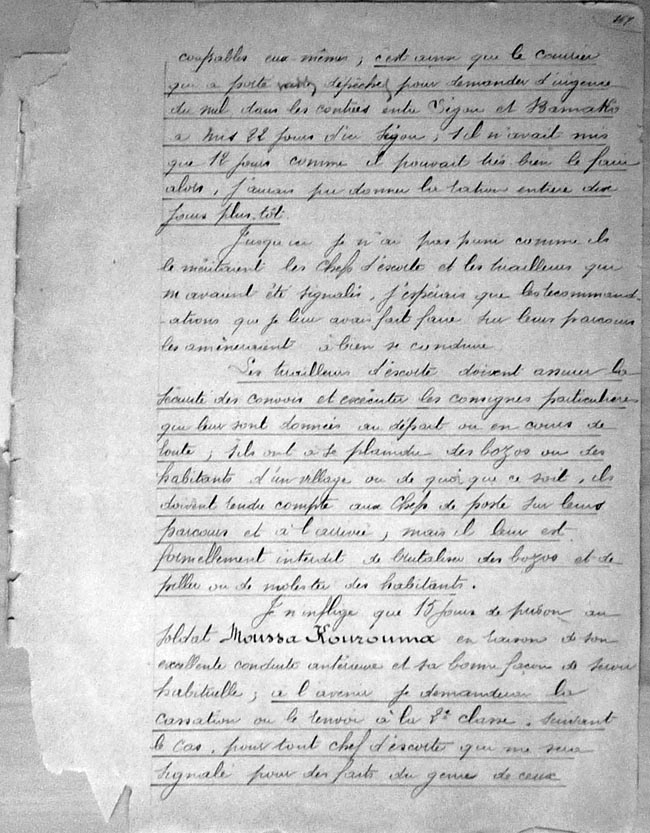 167
coupables eux-mêmes ; c'est ainsi que le courrier
qui a porté dépêches pour demander d'urgence
du mil dans les contrées entre Ségou et Bamako
a mis 22 jours d'ici Ségou ; s'il n'avait mis
que 12 jours comme il pouvait très bien le faire
alors, j'aurais pu donner la ration entière dix
jours plus tôt.
Jusqu'ici je n'ai pas puni comme ils
le méritaient les Chefs d'escorte et les tirailleurs qui
m'avaient été signalés, j'espérais que les recommand-
-ations que je leur avais fait faire sur leurs parcours
les amèneraient à bien se conduire.
Les tirailleurs d'escorte doivent assurer la
sécurité des convois et exécuter les consignes particulières
qui leur sont données au départ ou en cours de
route ; s'ils ont à se plaindre des bozos ou des
habitants d'un village ou de quoi que ce soit, ils
doivent rendre compte aux Chefs de poste sur leurs
parcours et à l'arrivée, mais il leur est
formellement interdit de brutaliser des bozos et de
piller ou de molester des habitants.
Je n'inflige que 15 jours de prison au
soldat Moussa Kourouma en raison de son
excellente conduite antérieure et sa bonne façon de servir
habituelle ; à l'avenir je demanderai la
cassation ou le renvoi à la 2e classe, suivant
le cas, pour tout chef d'escorte qui me sera
signalé pour des faits du genre de ceux